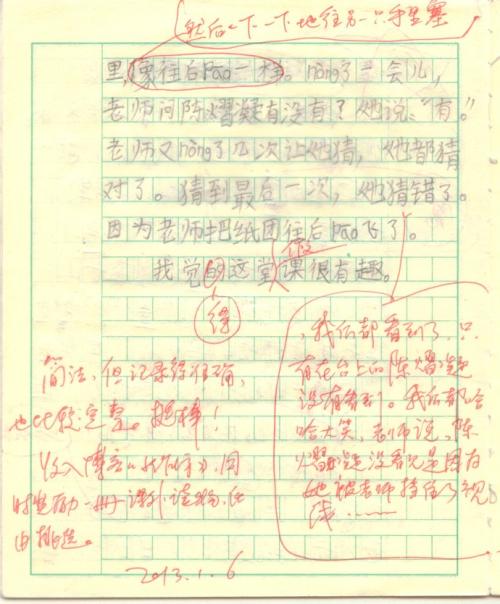 然后一下一下地往另一只手里塞
里,像往后pao一样。nòng了一会儿,
老师问陈熠凝有没有?她说:“有。”
老师又nòng了几次让她猜,她都猜
对了。猜到最后一次,她猜错了。
因为老师把纸团往后pao飞了。
微
我觉的这堂课很有趣。
得
,我们都看到了,只
有在台上的陈熠凝
没有看到。我们都哈
哈大笑,老师说,陈
熠凝没看见是因为
她被老师挡住了视
线……
简洁,但记录得准确,
也比较完整。挺棒!
收入博客,同
时奖励一册课外读物,任
由挑选。
2013.1.6